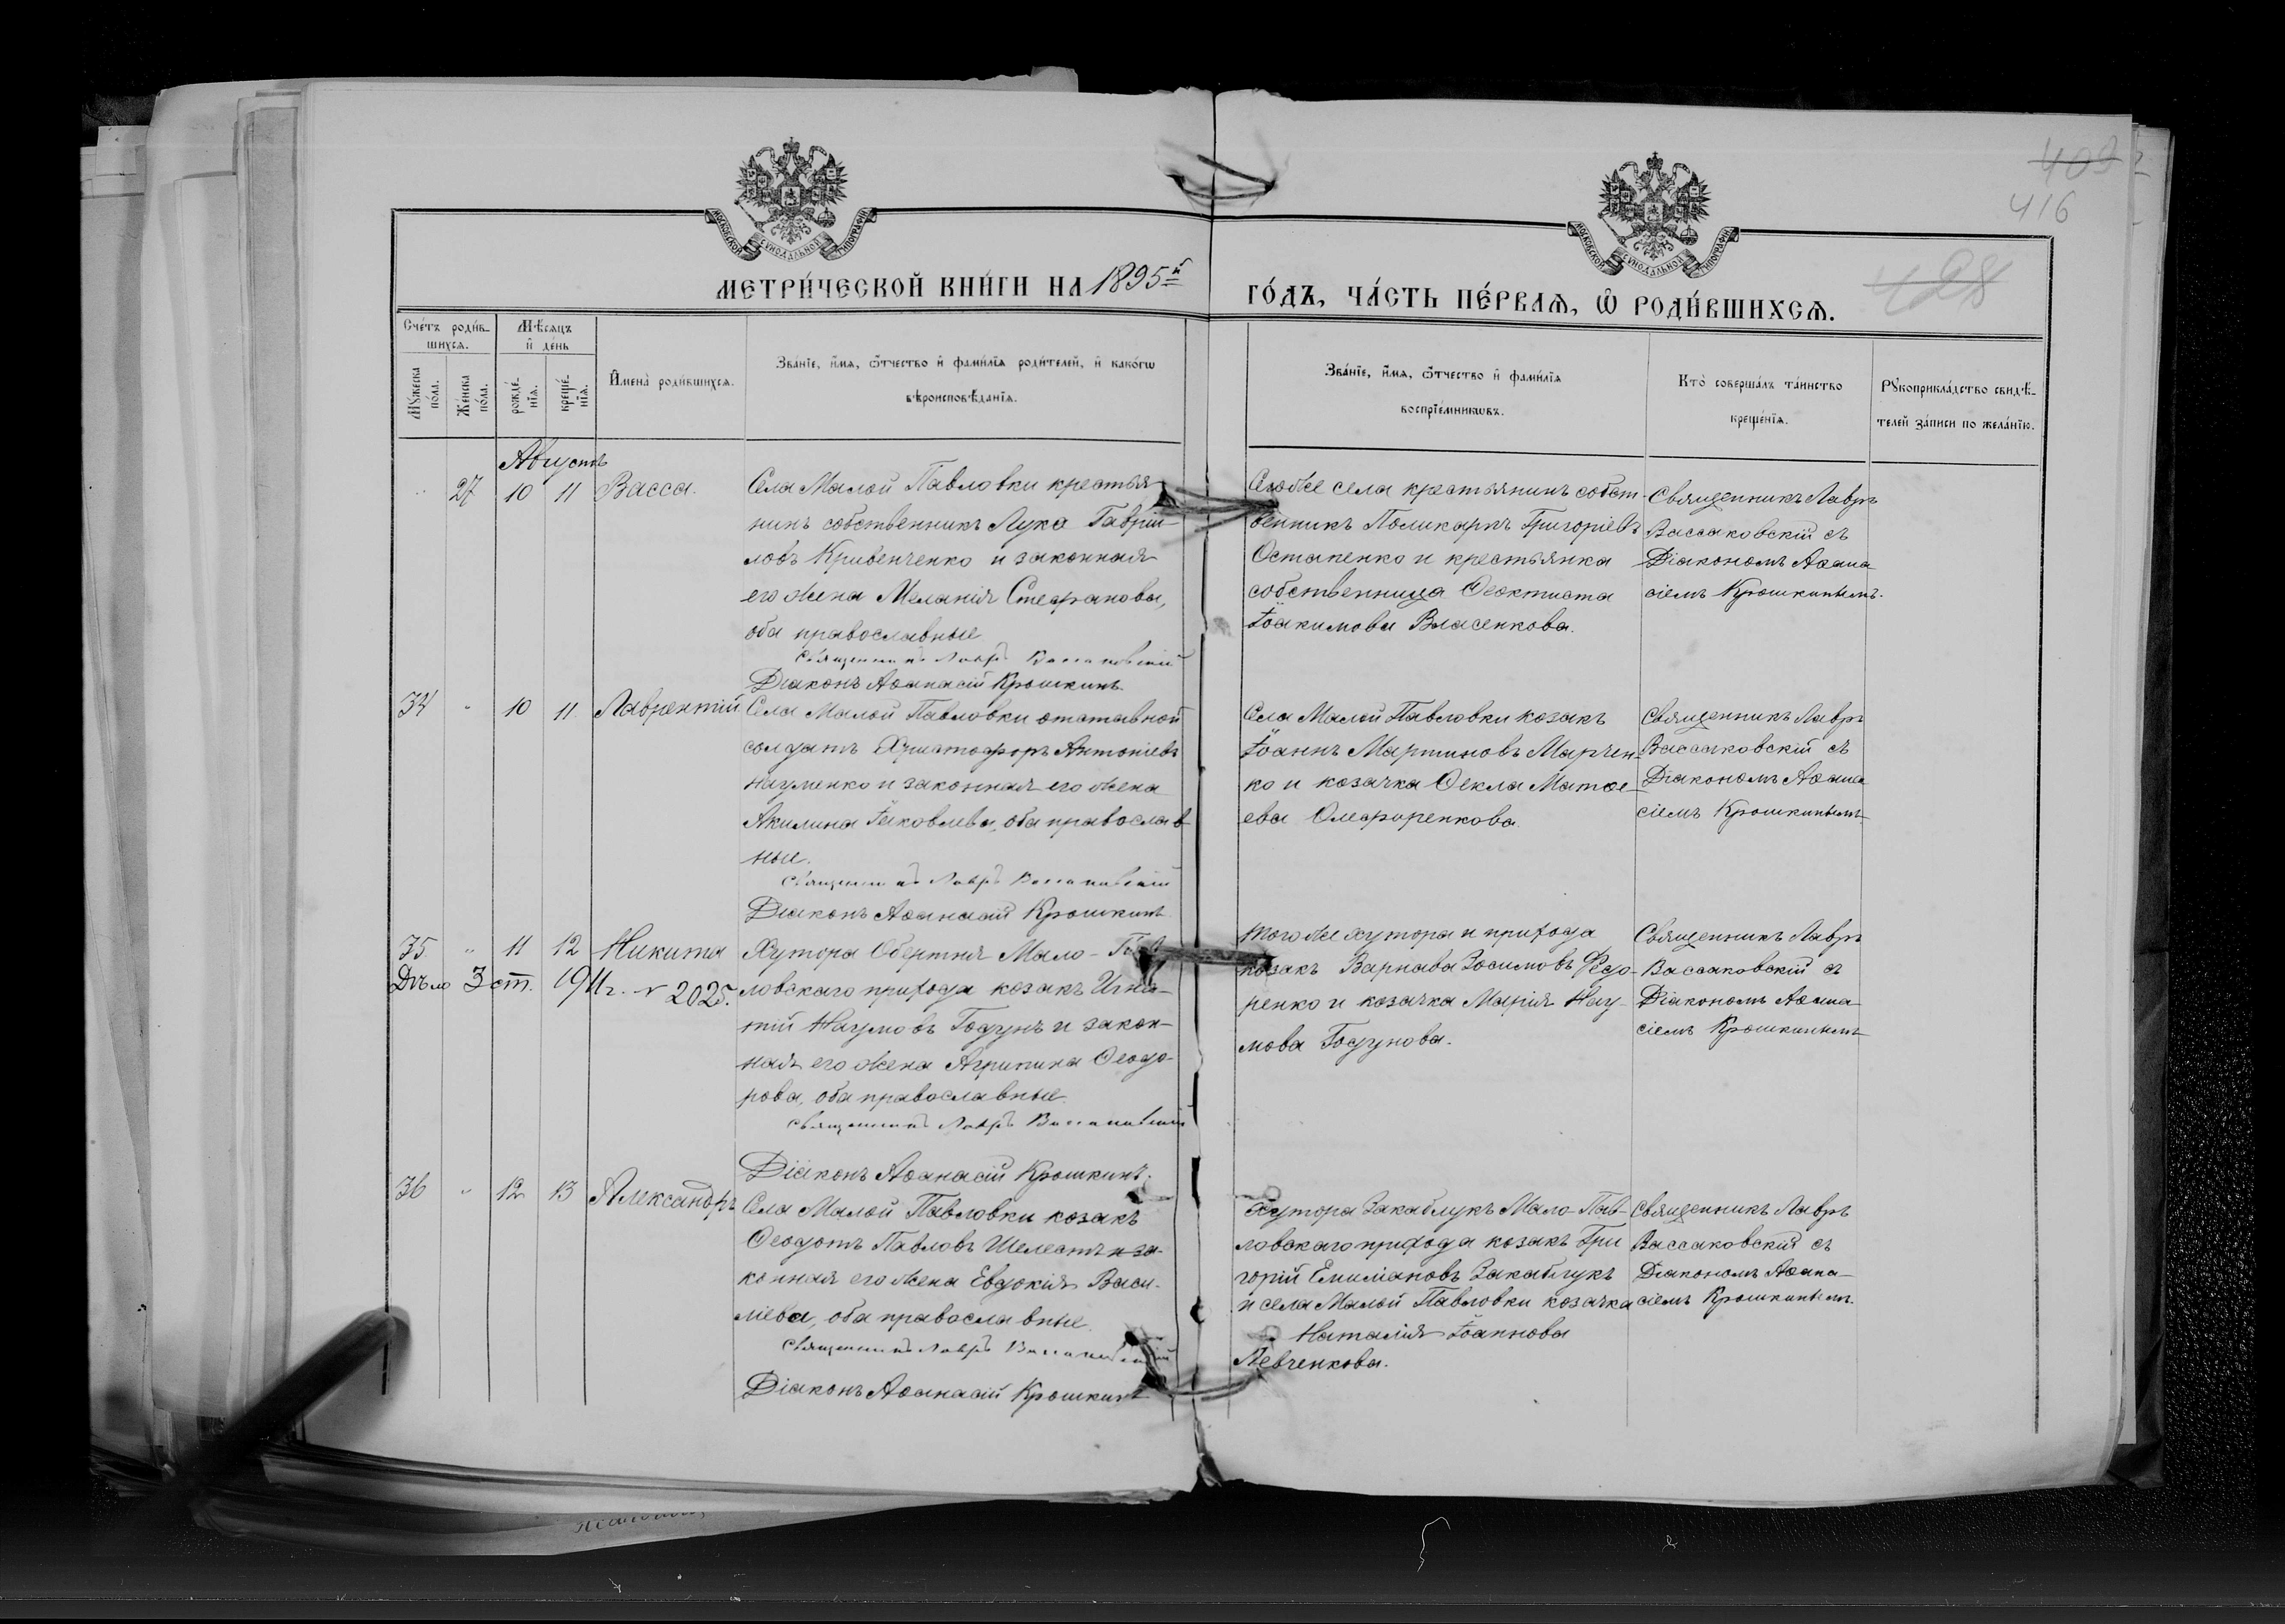 409
416
428
МОСКОВСКОЙ СѴНОДАЛЬНОЙ ТИПОГРАФІИ
МОСКОВСКОЙ СѴНОДАЛЬНОЙ ТИПОГРАФІИ
МЕТРИ́ЧЕСКОЙ КНИ́ГИ НА 1895й
ГО́ДЪ, ЧА́СТЬ ПЕ́РВАѦ, Ѽ РОДИ́ВШИХСѦ.
Сче́тъ роди́в-
шихсѧ.
Мꙋ́жеска
по́ла.
Же́нска
по́ла.
Мѣ́сѧцъ
и҆ де́нь
рожде́-
нїѧ.
креще́-
нїѧ.
И҆мена̀ роди́вшихсѧ.
Зва́нїе, и҆́мѧ, ѻ҆́тчество и҆ фами́лїѧ роди́телей, и҆ како́гѡ
вѣроисповѣ́данїѧ.
Зва́нїе, и҆́мѧ, ѻ҆́тчество и҆ фами́лїѧ
воспрїе́мникѡвъ.
Кто̀ соверша́лъ та́инство
креще́нїѧ.
Рꙋкоприкла́дство свидѣ́-
телей за́писи по жела́нїю.
Августъ
27 10 11 Васса.
Села Малой Павловки крестья-
нинъ собственникъ Лука Гаврїи-
ловъ Кривенченко и законная
его жена Меланія Стефанова,
оба православные
Священникъ Лавръ Вассаковскій
Дїаконъ Аѳанасій Крошкинъ.
Того же села крестьянинъ собст-
венникъ Поликарпъ Григорїевъ
Остапенко и крестьянка
собственница Ѳеоктиста
Іоакимова Власенкова.
Священникъ Лавръ
Вассаковскій съ
Дїакономъ Аѳана
сіемъ Крошкинымъ.
34 " 10 11 Лаврентій
Села Малой Павловки отставной
солдатъ Христофоръ Антоніевъ
Науменко и законная его жена
Акилина Іаковлева, оба православ
ные.
Священникъ Лавръ Вассаковскій
Дїаконъ Аѳанасій Крошкинъ
Села Малой Павловки козакъ
Іоаннъ Мартиновъ Марчен-
ко и козачка Ѳекла Матѳе-
ева Олефиренкова.
Священникъ Лавръ
Вассаковскій съ
Дїакономъ Аѳана
сіемъ Крошкинымъ
35 " 11 12 Никита
Дѣло 3 ст. 1911 г. № 2025.
Хутора Обертня Мало-Пав
ловскаго прихода козакъ Игна-
тій Наумовъ Годунъ и закон-
ная его жена Агрипина Ѳеодо-
рова, оба православные.
Священникъ Лавръ Вассаковскій
Дїаконъ Аѳанасій Крошкинъ.
Того же хутора и прихода
козакъ Варнава Зосимовъ Федо-
ренко и козачка Марія Нау-
мова Годунова.
Священникъ Лавръ
Вассаковскій съ
Дїакономъ Аѳана-
сіемъ Крошкинымъ
36 " 12 13 Александръ
Села Малой Павловки козакъ
Ѳеодотъ Павловъ Шелестъ и за-
конная его жена Евдокія Васи-
ліева, оба православные.
Священникъ Лавръ Вассаковскій
Дїаконъ Аѳанасій Крошкинъ
Хутора Закаблукъ Мало-Пав-
ловскаго прихода козакъ Гри
горій Емиліановъ Закаблукъ
и села Малой Павловки козачка
Наталія Іоаннова
Левченкова.
Священникъ Лавръ
Вассаковскій съ
Дїакономъ Аѳана-
сіемъ Крошкинымъ.